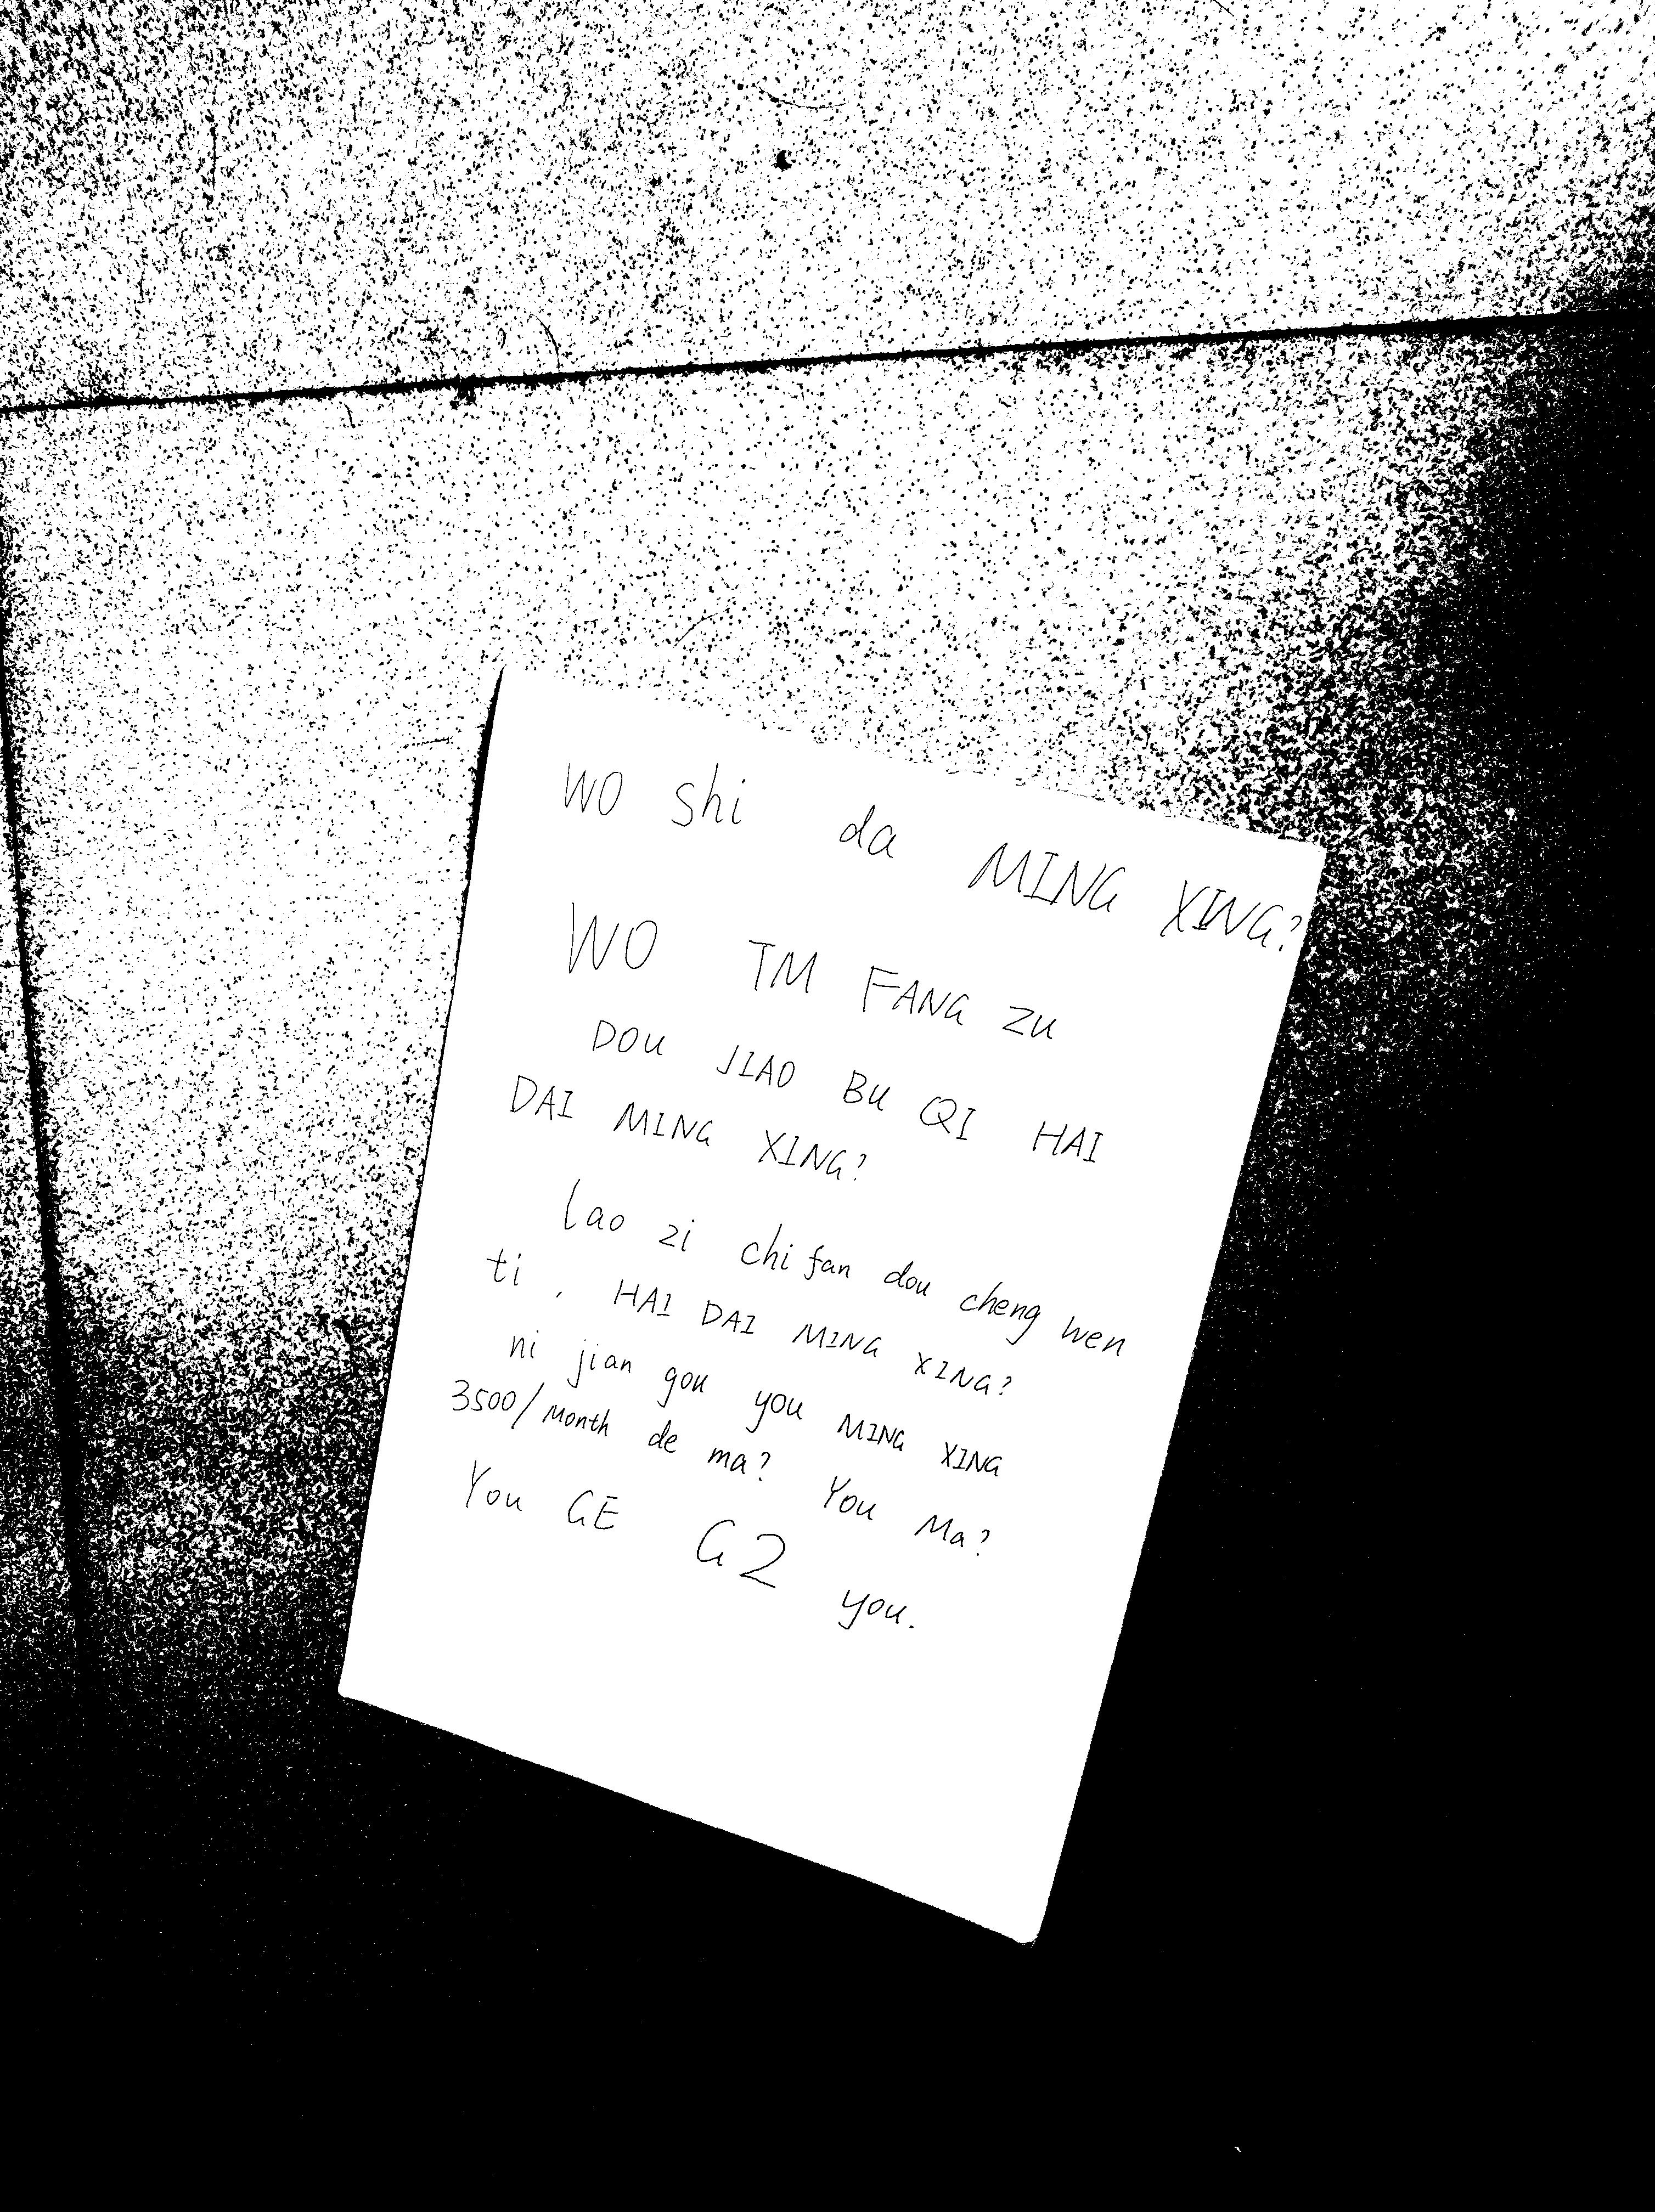 WO shi da MING XING?
WO TM FANG ZU
DOU JIAO BU QI HAI
DAI MING XING?
lao zi chi fan dou cheng wen
ti, HAI DAI MING XING?
ni jian gou you MING XING
3500/Month de ma? You Ma?
You GE G2 you.